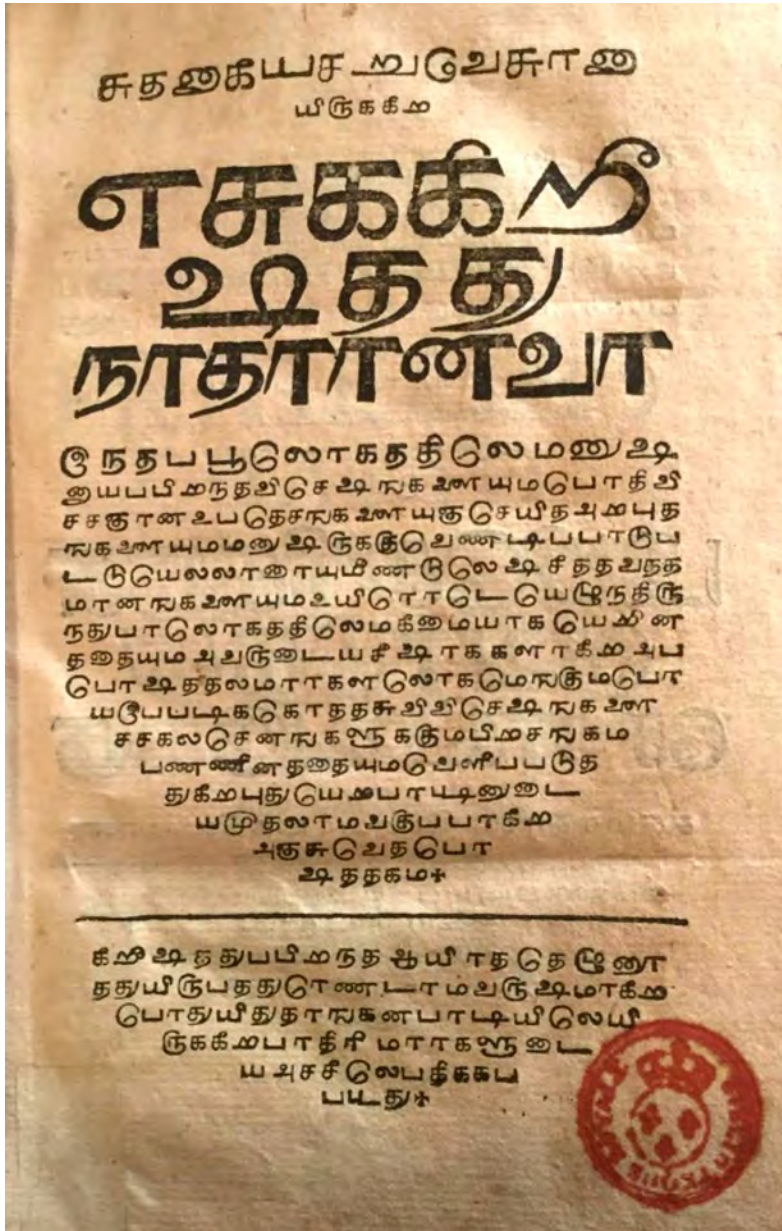 சுதனாகீயசறுவெசுரனா
யிருககிற
எசுககிறீ
ஷதது
நாதரானவர
இநதபபூலொகததிலெமனுஷ
னாயபபிறநதவிசெஷஙகளையுமபொதிவி
சசஞானஉபதெசஙகளையுஞசெயிதஅறபுத
ஙகளையுமமனுஷருககுவெணடிபபாடுப
டடுயெலலாரையுமீணடுரெஷசிததவநத
மானஙகளையுமஉயிரொடெயெழுநதிரு
நதுபரலொகததிலெமகிமையாகயெறின
ததையுமஅவருடையசீஷரககளாகிறஅப
பொஷததலமாரகளலொகமெஙகுமபொ
யஇபபடிககொததசுவிவிசெஷஙகளை
சசகலசெனஙகளுககுமபிறசஙகம
பணணினததையுமவெளிபபடுத
துகிறபுதுயெறபாடடினுடை
யமுதலாமவகுபபாகிற
அஞசுவெதபொ
ஷததகம✠
கிறிஷததுபபிறநதஆயிரததெழுனூ
ததுயிருபததுரெணடாமவருஷமாகிற
பொதுயிதுதரஙகனபாடியிலெயி
ருககிறபாதிரிமாரகளுடை
யஅசசிலெபதிககப
படடது✠